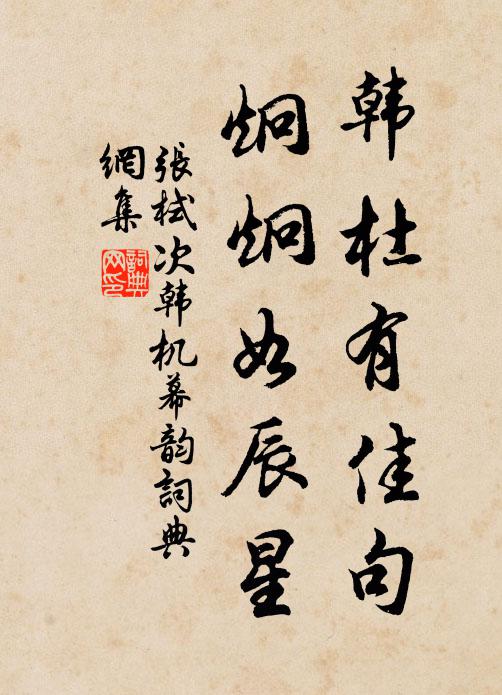 韩杜有佳句
炯炯如辰星
張栻次韩机幕韵詞典
網集
詞典
网印